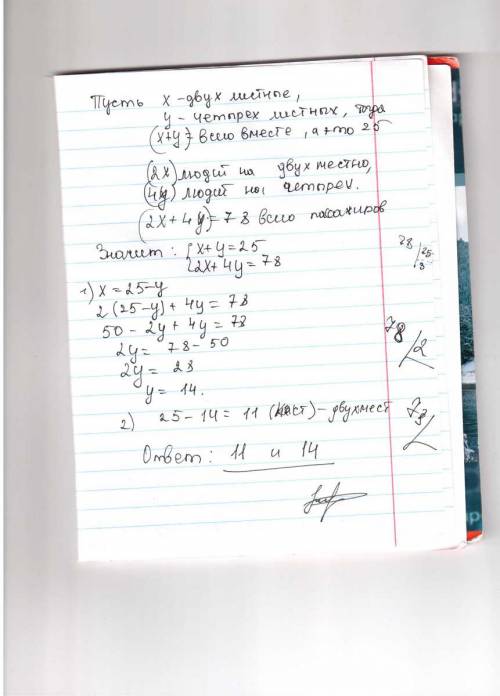 Пусть x - двух местные,
y - четырех местных, тогда
(x+y) - всего вместе, а это 25
(2x) людей на двух местно,
(4y) людей на четырех.
(2x + 4y) = 78 всего пасажиров
Значит: { x + y = 25
2x + 4y = 78
1) x = 25 - y
2(25 - y) + 4y = 78
50 - 2y + 4y = 78
2y = 78 - 50
2y = 28
y = 14.
2) 25 - 14 = 11 - двухмест
Ответ: 11 и 14
28 25
78 2